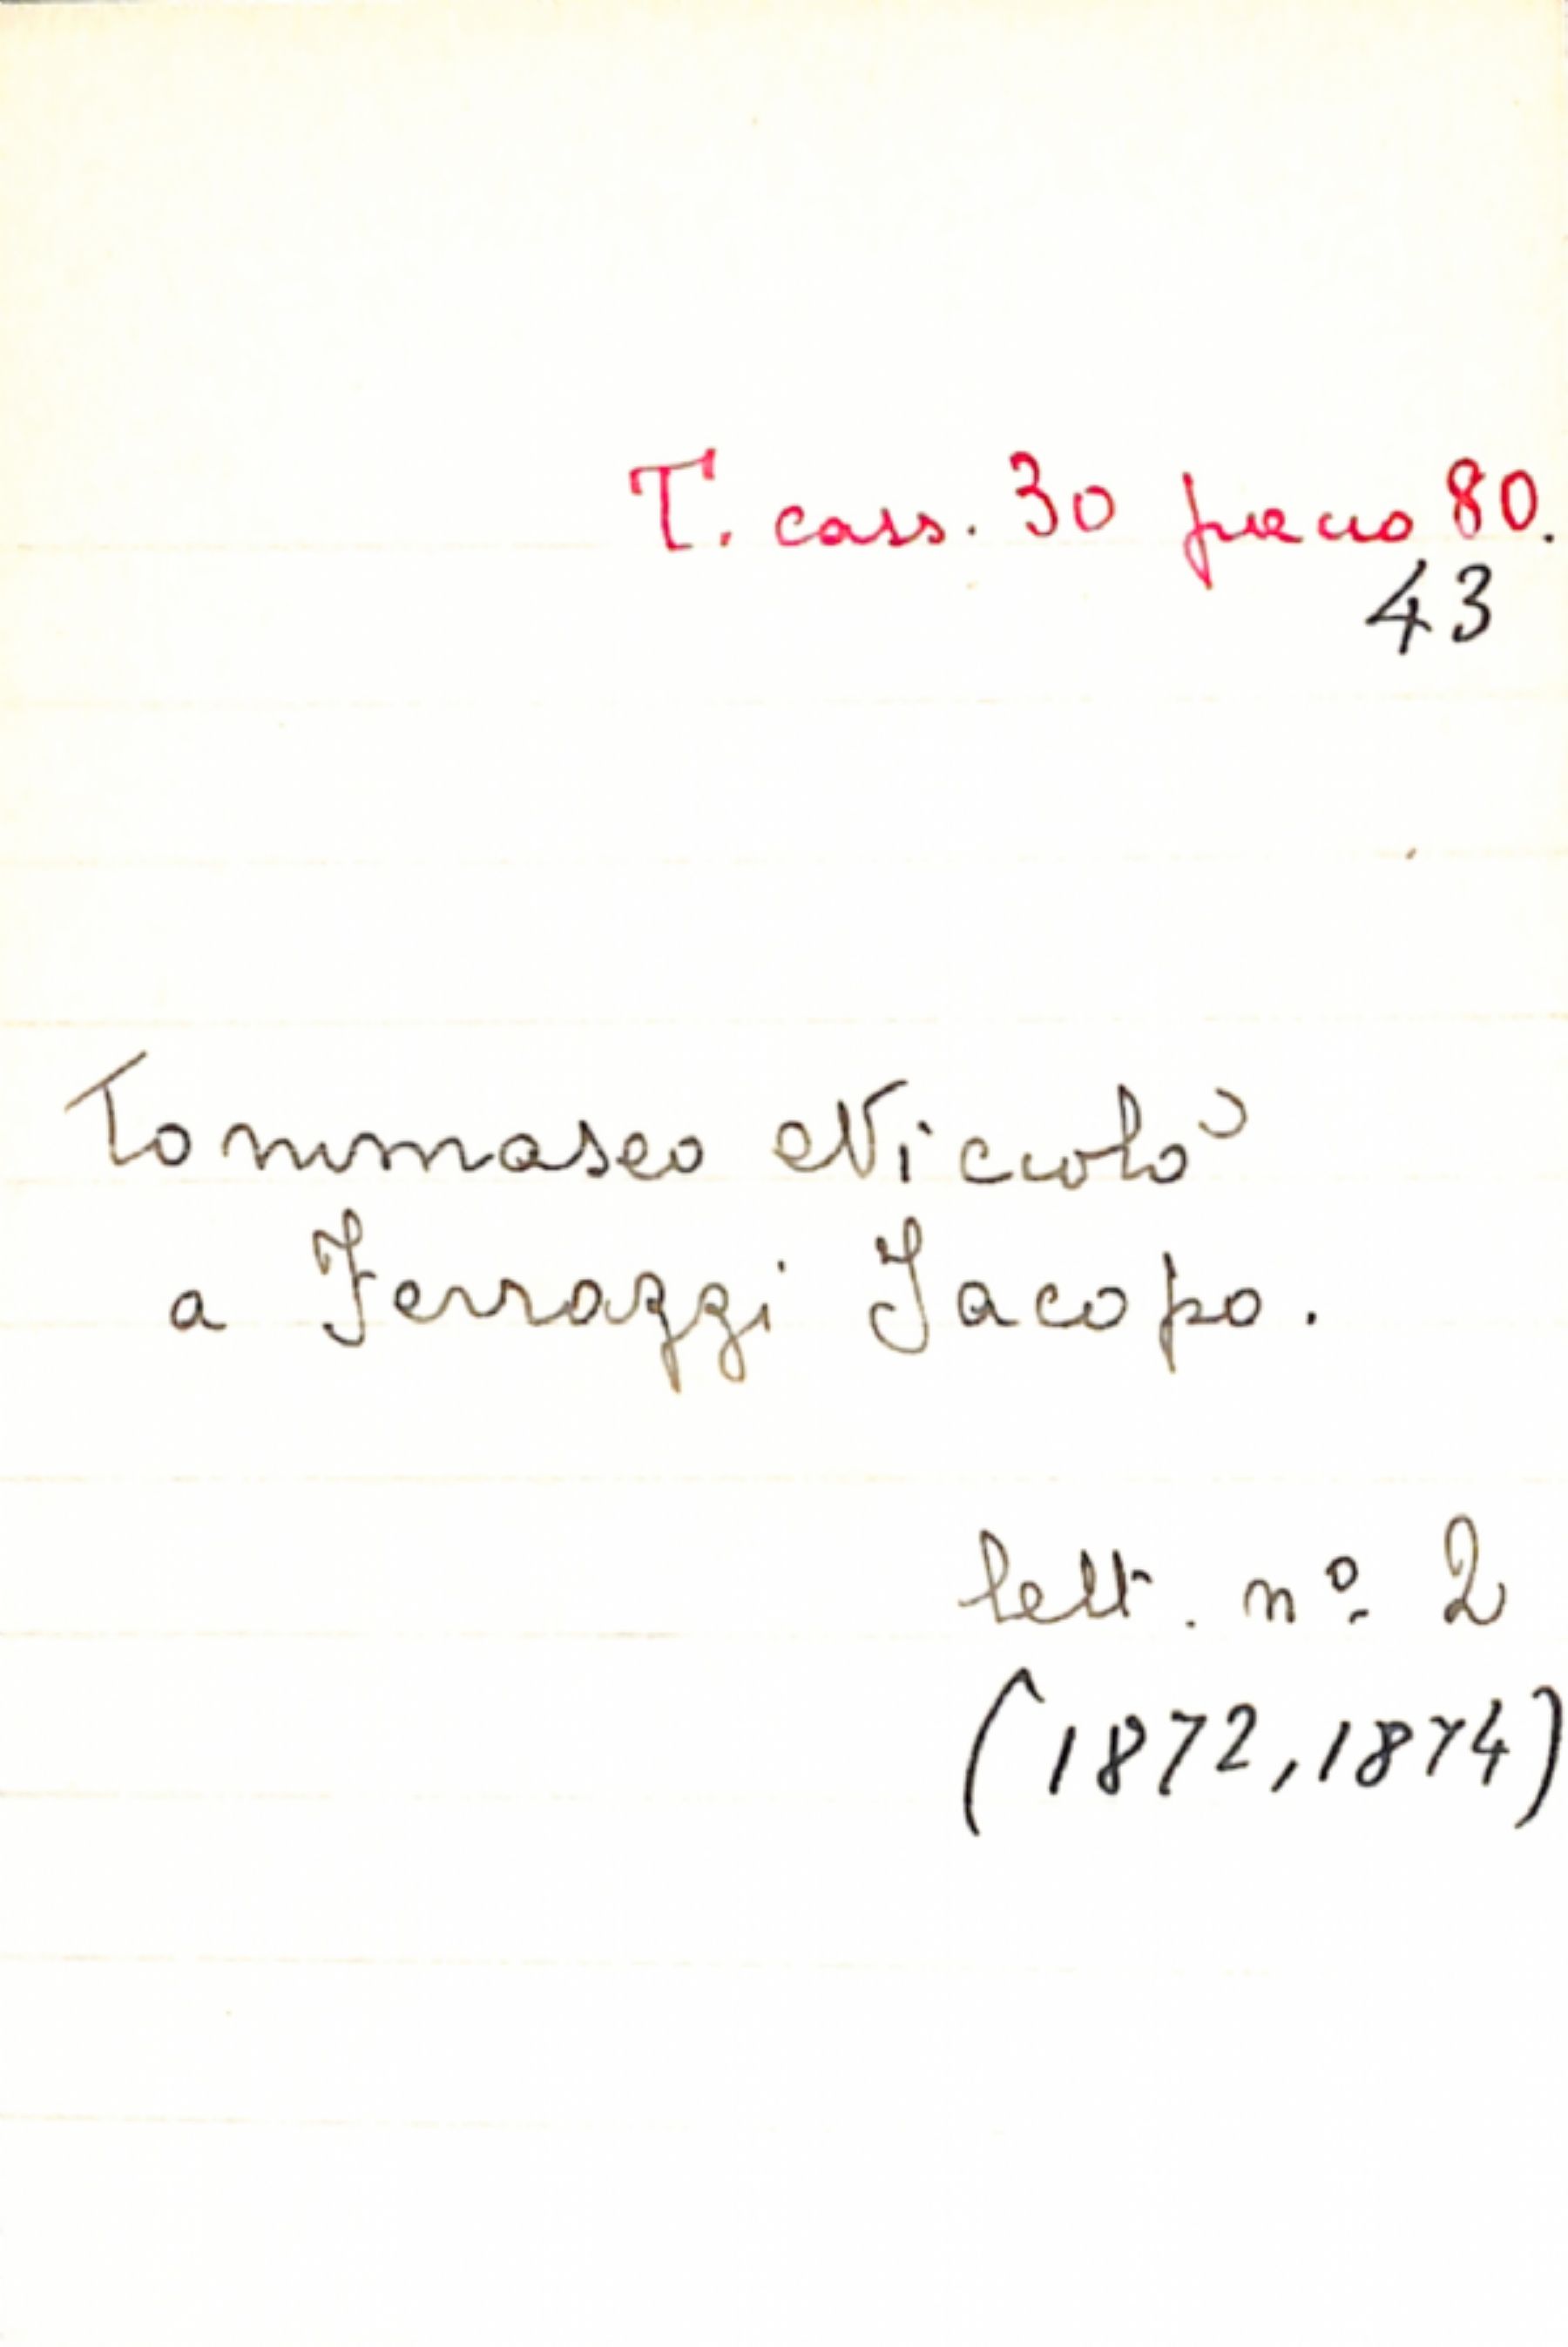 T. cass. 30 pezzo 80.
43
Tommaseo Niccolò
a Ferrazzi Jacopo.
lett. nº 2
(1872, 1874)